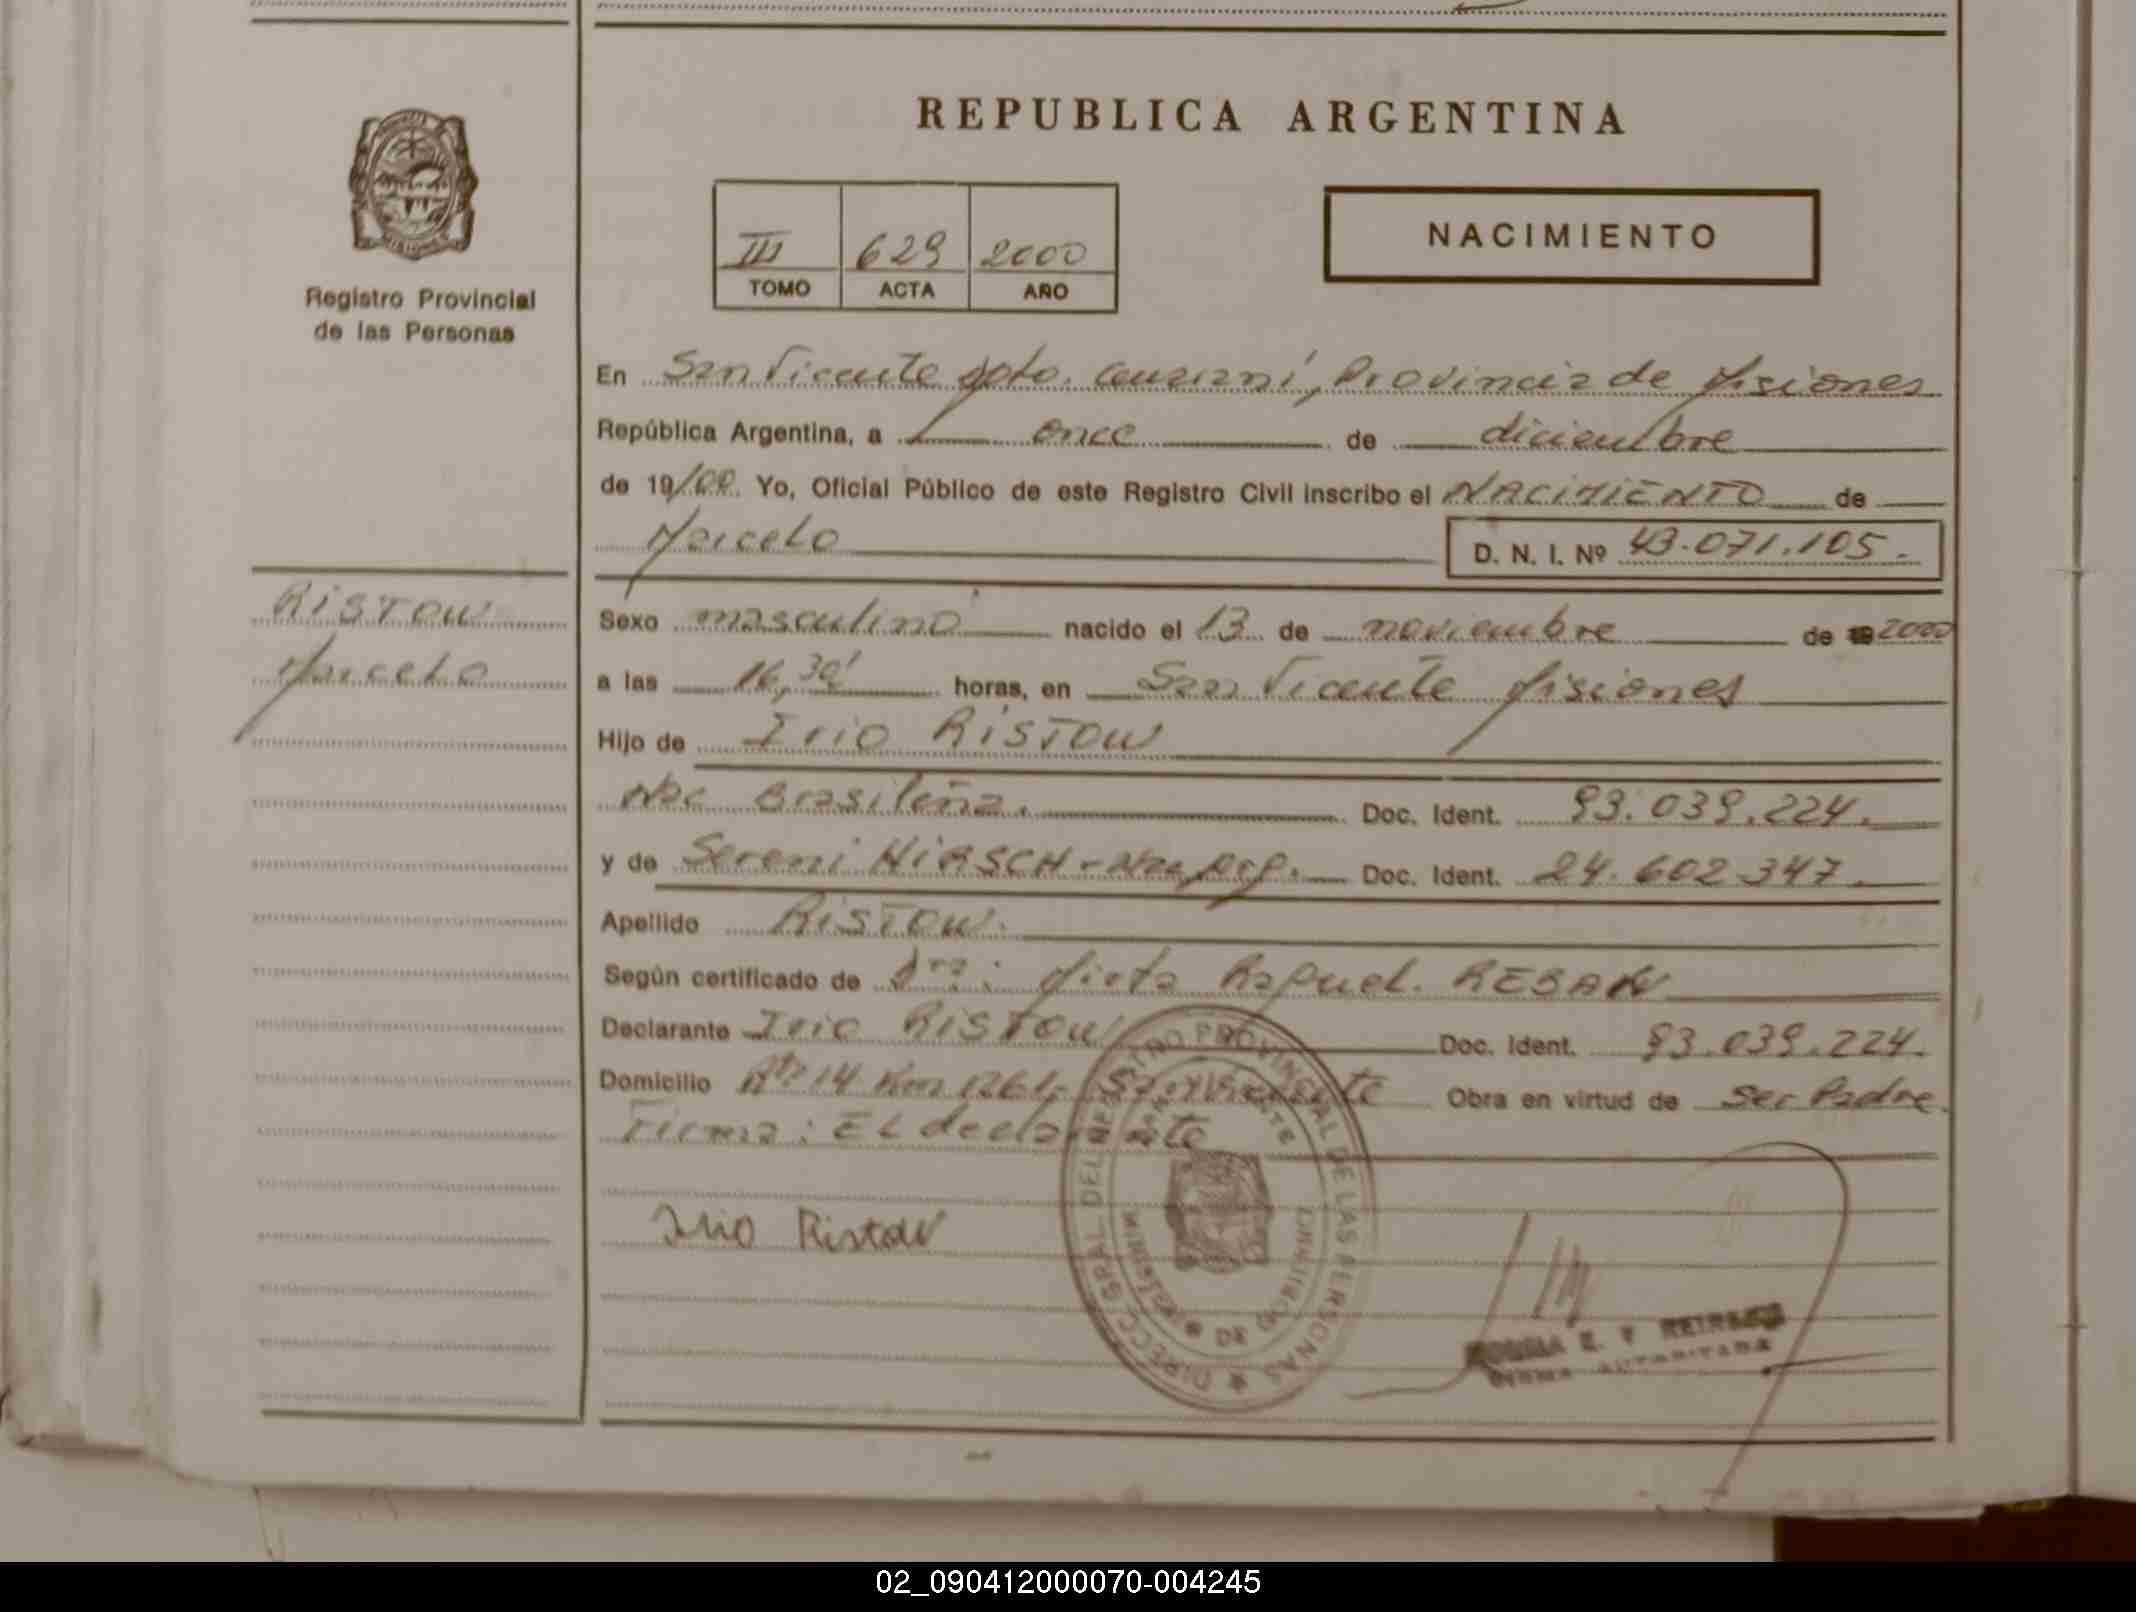 REPUBLICA ARGENTINA
Registro Provincial
de las Personas
III 629 2000
TOMO ACTA AÑO
NACIMIENTO
En San Vicente dpto. Guaraní, Provincia de Misiones
República Argentina, a once de diciembre
de 19/00. Yo, Oficial Público de este Registro Civil inscribo el NACIMIENTO de
Marcelo
D. N. I. Nº 43.071.105.-
RISTOW
Marcelo
Sexo masculino nacido el 13 de noviembre de 2000
a las 16,30' horas, en San Vicente Misiones
Hijo de Irio RISTOW
Nac Brasileña. Doc. Ident. 93.039.224.
y de Sereni HIRSCH - Nac. Arg. Doc. Ident. 24.602.347.
Apellido RISTOW.
Según certificado de Dra: Mirta Raquel.
Declarante Irio RISTOW Doc. Ident. 93.039.224.
Domicilio Rta 14 Km 1261- San Vicente Obra en virtud de Ser Padre.
Firma: El declarante
Irio Ristow
DIRECC. GRAL. DEL REGISTRO PROVINCIAL DE LAS PERSONAS
SAN VICENTE
MINISTERIO DE GOBIERNO
E. V.
FIRMA AUTORIZADA
02_090412000070-004245